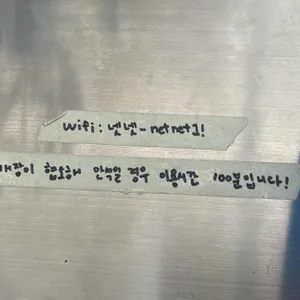 wifi : 넷넷 - netnet1!
매장이 협소해 만석일 경우 이용시간 100분입니다!